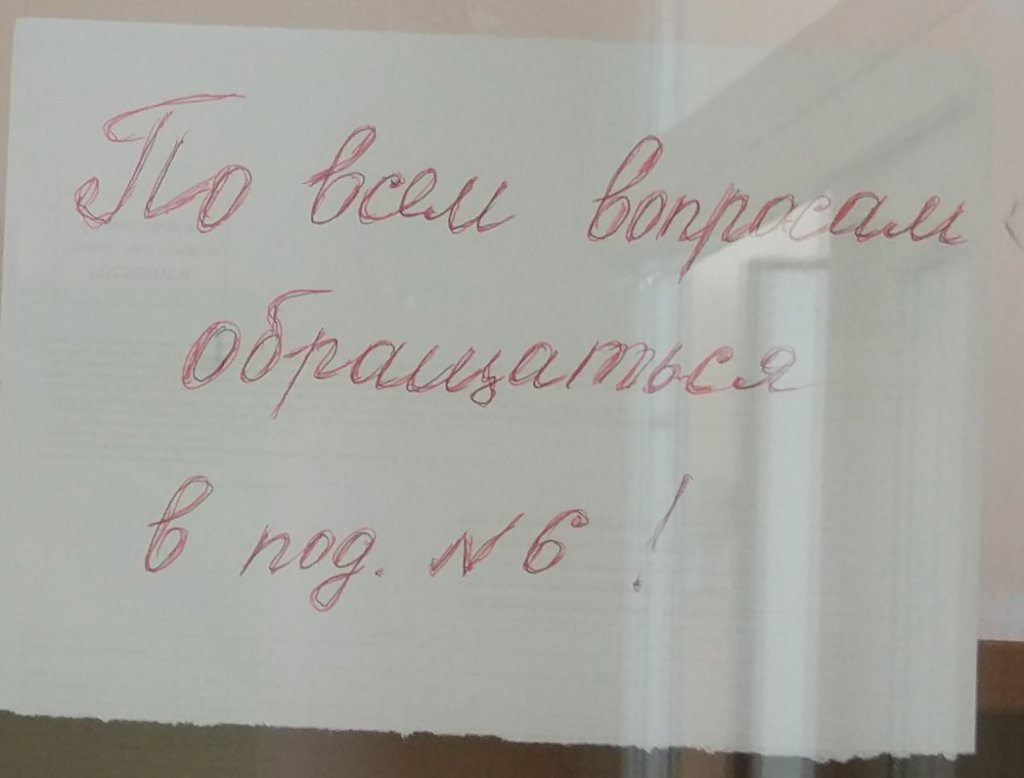 По всем вопросам
обращаться
в под. N 6 !